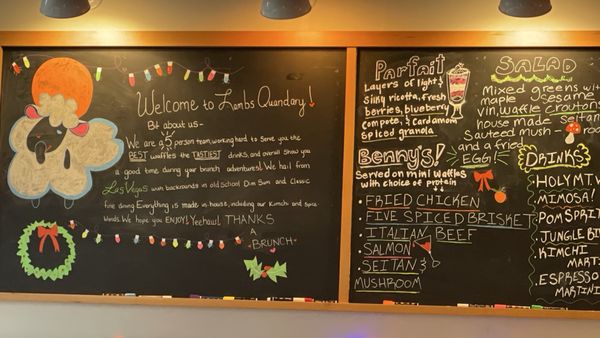 Welcome to Lambs Quandary!
Bit about us-
We are a person team, working hard to serve you the
BEST waffles the TASTIEST drinks, and overall show you
a good time during your brunch adventures! We hail from
Las Vegas with backrounds in old school Dim Sum and Classic
fine dining. Everything is made in house, including our Kimchi and Spice
blends. We hope you ENJOY! Yeehaw! THANKS
A
BRUNCH
Parfait
Layers of light &
Silky ricotta, fresh
Berries, blueberry
Compote, & Cardamom
Spiced granola
Benny's!
Served on mini waffles
with choice of protein
· FRIED CHICKEN
· FIVE SPICED BRISKET
· ITALIAN BEEF
· SALMON
· SEITAN &
MUSHROOM
SALAD
Mixed greens with
maple sesame
vin, Waffle Croutons
House made Seitan
Sauteed mush-
and a fried
EGG!
DRINKS
· HOLY MTN
· MIMOSA!
· POM SPRITZ
· JUNGLE BI
· KIMCHI
MARTI
· ESPRESSO
MARTINI